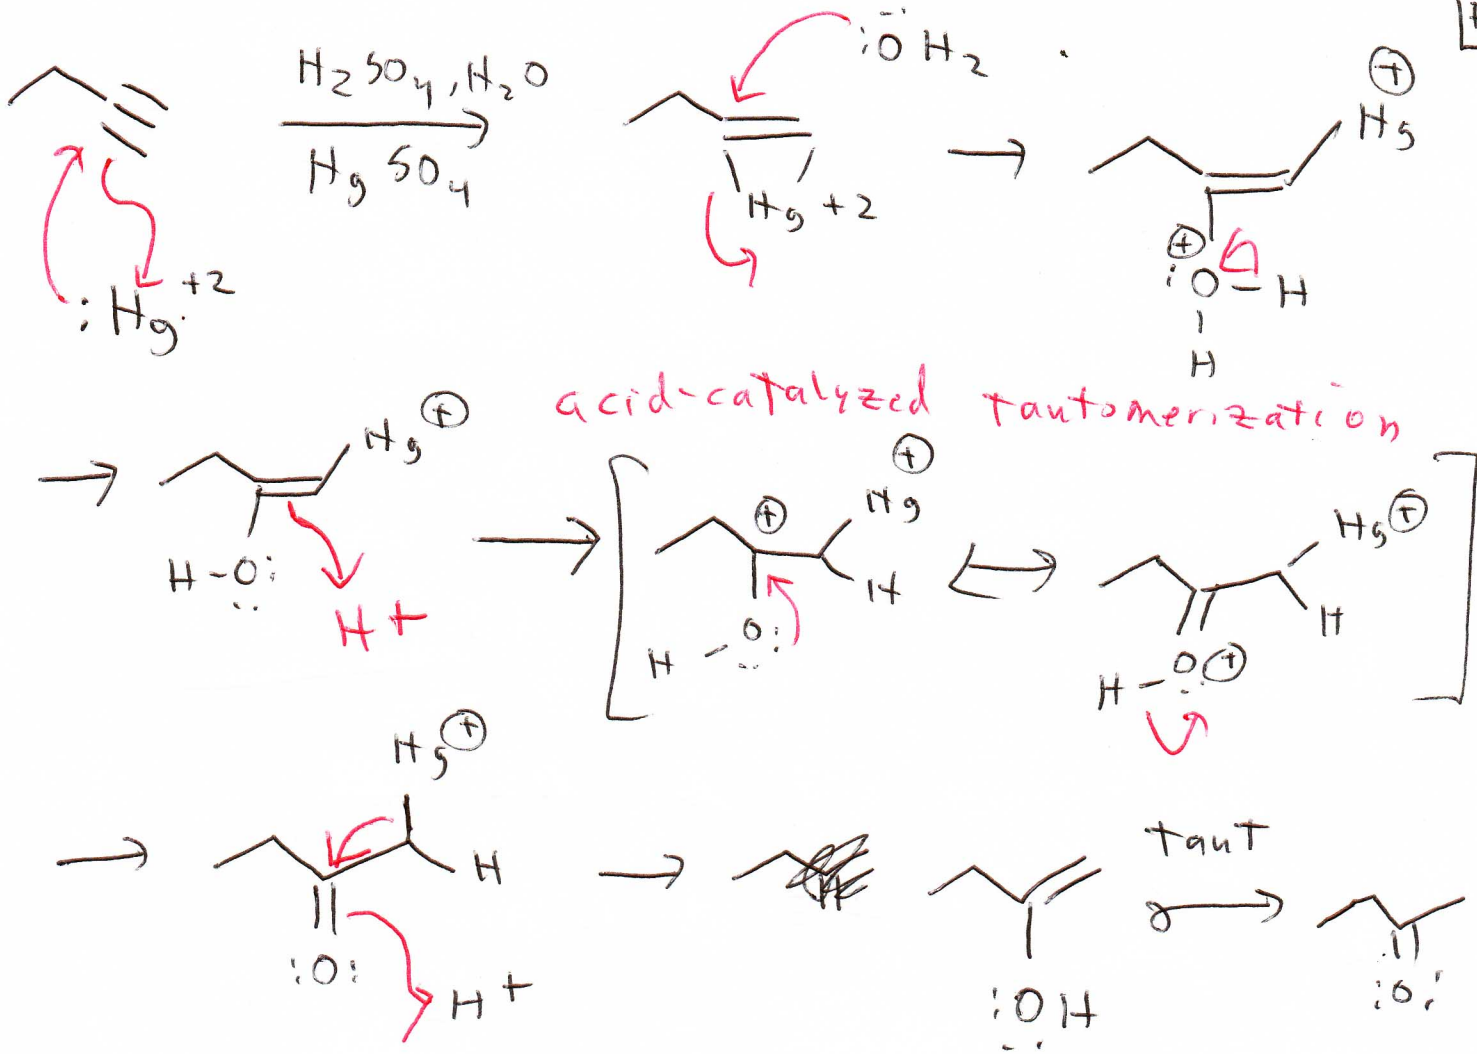 H2SO4, H2O
HgSO4
:Hg: +2
:ÖH2
Hg +2
⊕
Hg
⊕
:O-H
H
acid-catalyzed tautomerization
Hg ⊕
H-O:
H+
⊕
Hg
⊕
H
H-O:
Hg ⊕
H
H-O ⊕
Hg ⊕
H
:O:
H+
H
:OH
taut
:O: